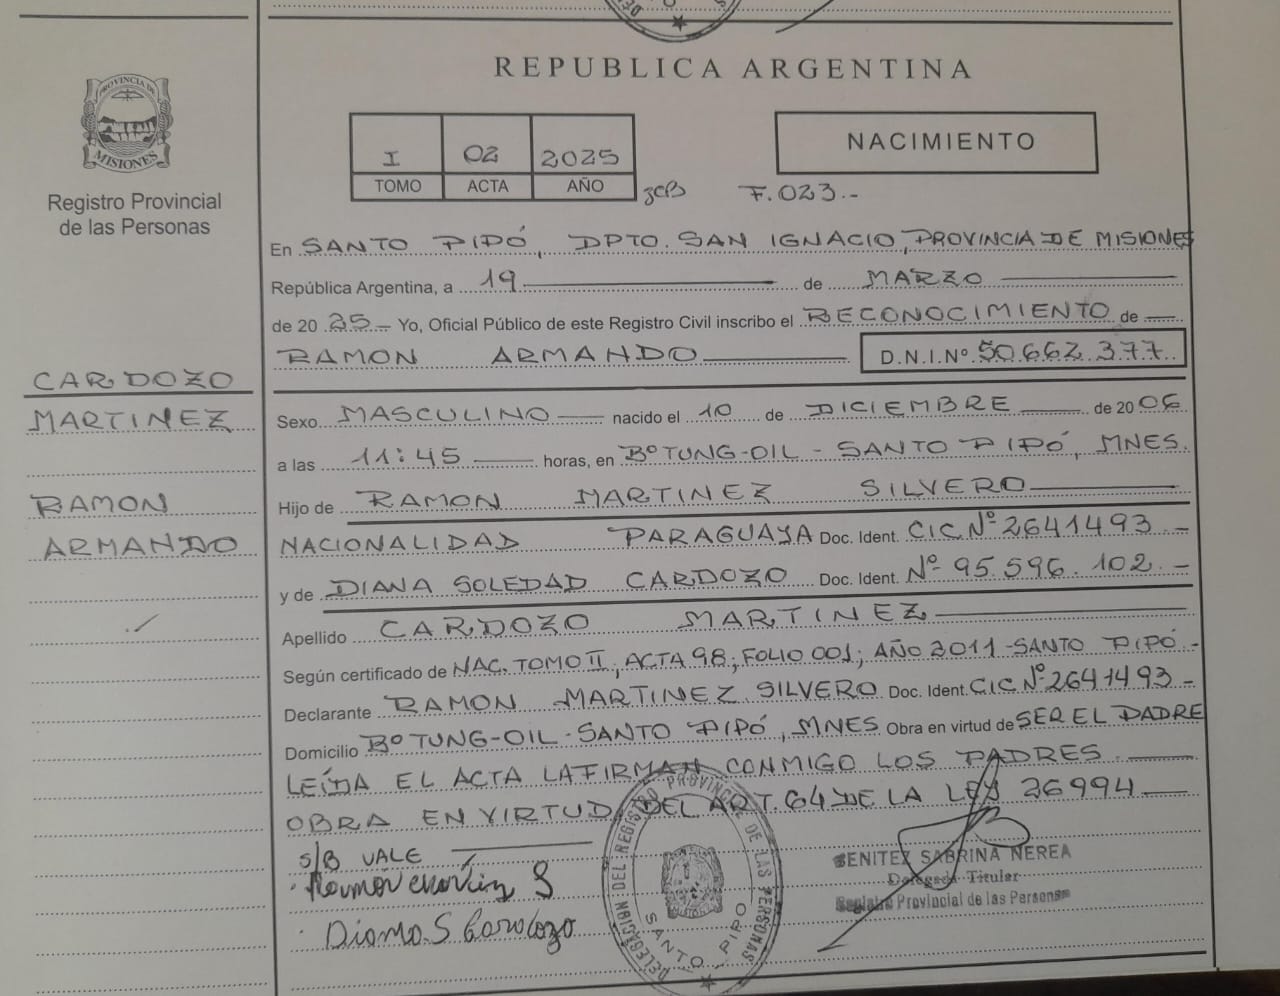 REPUBLICA ARGENTINA
PROVINCIA DE
MISIONES
Registro Provincial
de las Personas
I 02 2025
TOMO ACTA AÑO
NACIMIENTO
F. 023.-
En SANTO PIPÓ, DPTO. SAN IGNACIO, PROVINCIA DE MISIONES
República Argentina, a 19 de MARZO
de 20 25 Yo, Oficial Público de este Registro Civil inscribo el RECONOCIMIENTO de
RAMON ARMANDO D.N.I.Nº 50.662.377
CARDOZO
MARTINEZ
RAMON
ARMANDO
Sexo MASCULINO nacido el 10 de DICIEMBRE de 20 06
a las 11:45 horas, en Bº TUNG-OIL - SANTO PIPÓ, MNES.
Hijo de RAMON MARTINEZ SILVERO
NACIONALIDAD PARAGUAYA Doc. Ident. CIC. Nº 2641493 -
y de DIANA SOLEDAD CARDOZO Doc. Ident. Nº 95.596.102.-
Apellido CARDOZO MARTINEZ
Según certificado de NAC. TOMO II, ACTA 98; FOLIO 001; AÑO 2011-SANTO PIPÓ.-
Declarante RAMON MARTINEZ SILVERO Doc. Ident. CIC Nº 2641493 -
Domicilio Bº TUNG-OIL - SANTO PIPÓ, MNES Obra en virtud de SER EL PADRE
LEÍDA EL ACTA LA FIRMAN CONMIGO LOS PADRES
OBRA EN VIRTUD DEL ART. 64 DE LA LEY 26994
S/B VALE
DELEGACION DEL REGISTRO PROVINCIAL DE LAS PERSONAS
SANTO PIPO
BENITEZ SABRINA NEREA
Delegada Titular
Registro Provincial de las Personas